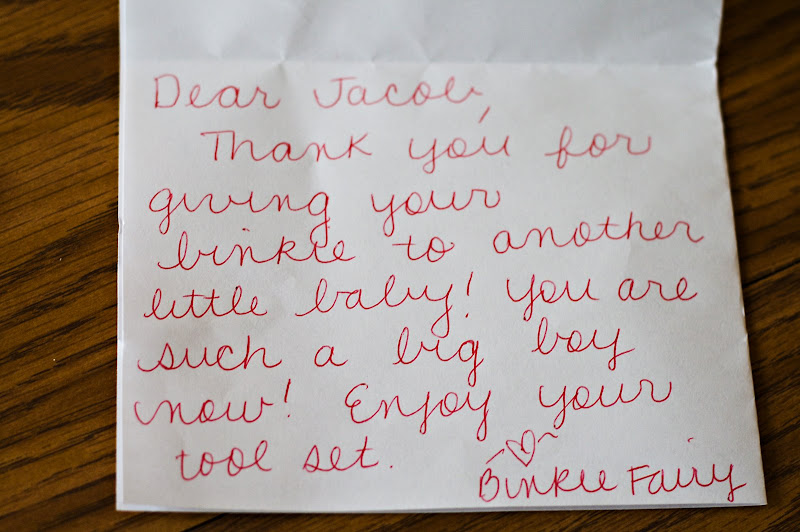 Dear Jacob,
Thank you for
giving your
binkie to another
little baby! You are
such a big boy
now! Enjoy your
tool set.
~♡~
Binkie Fairy